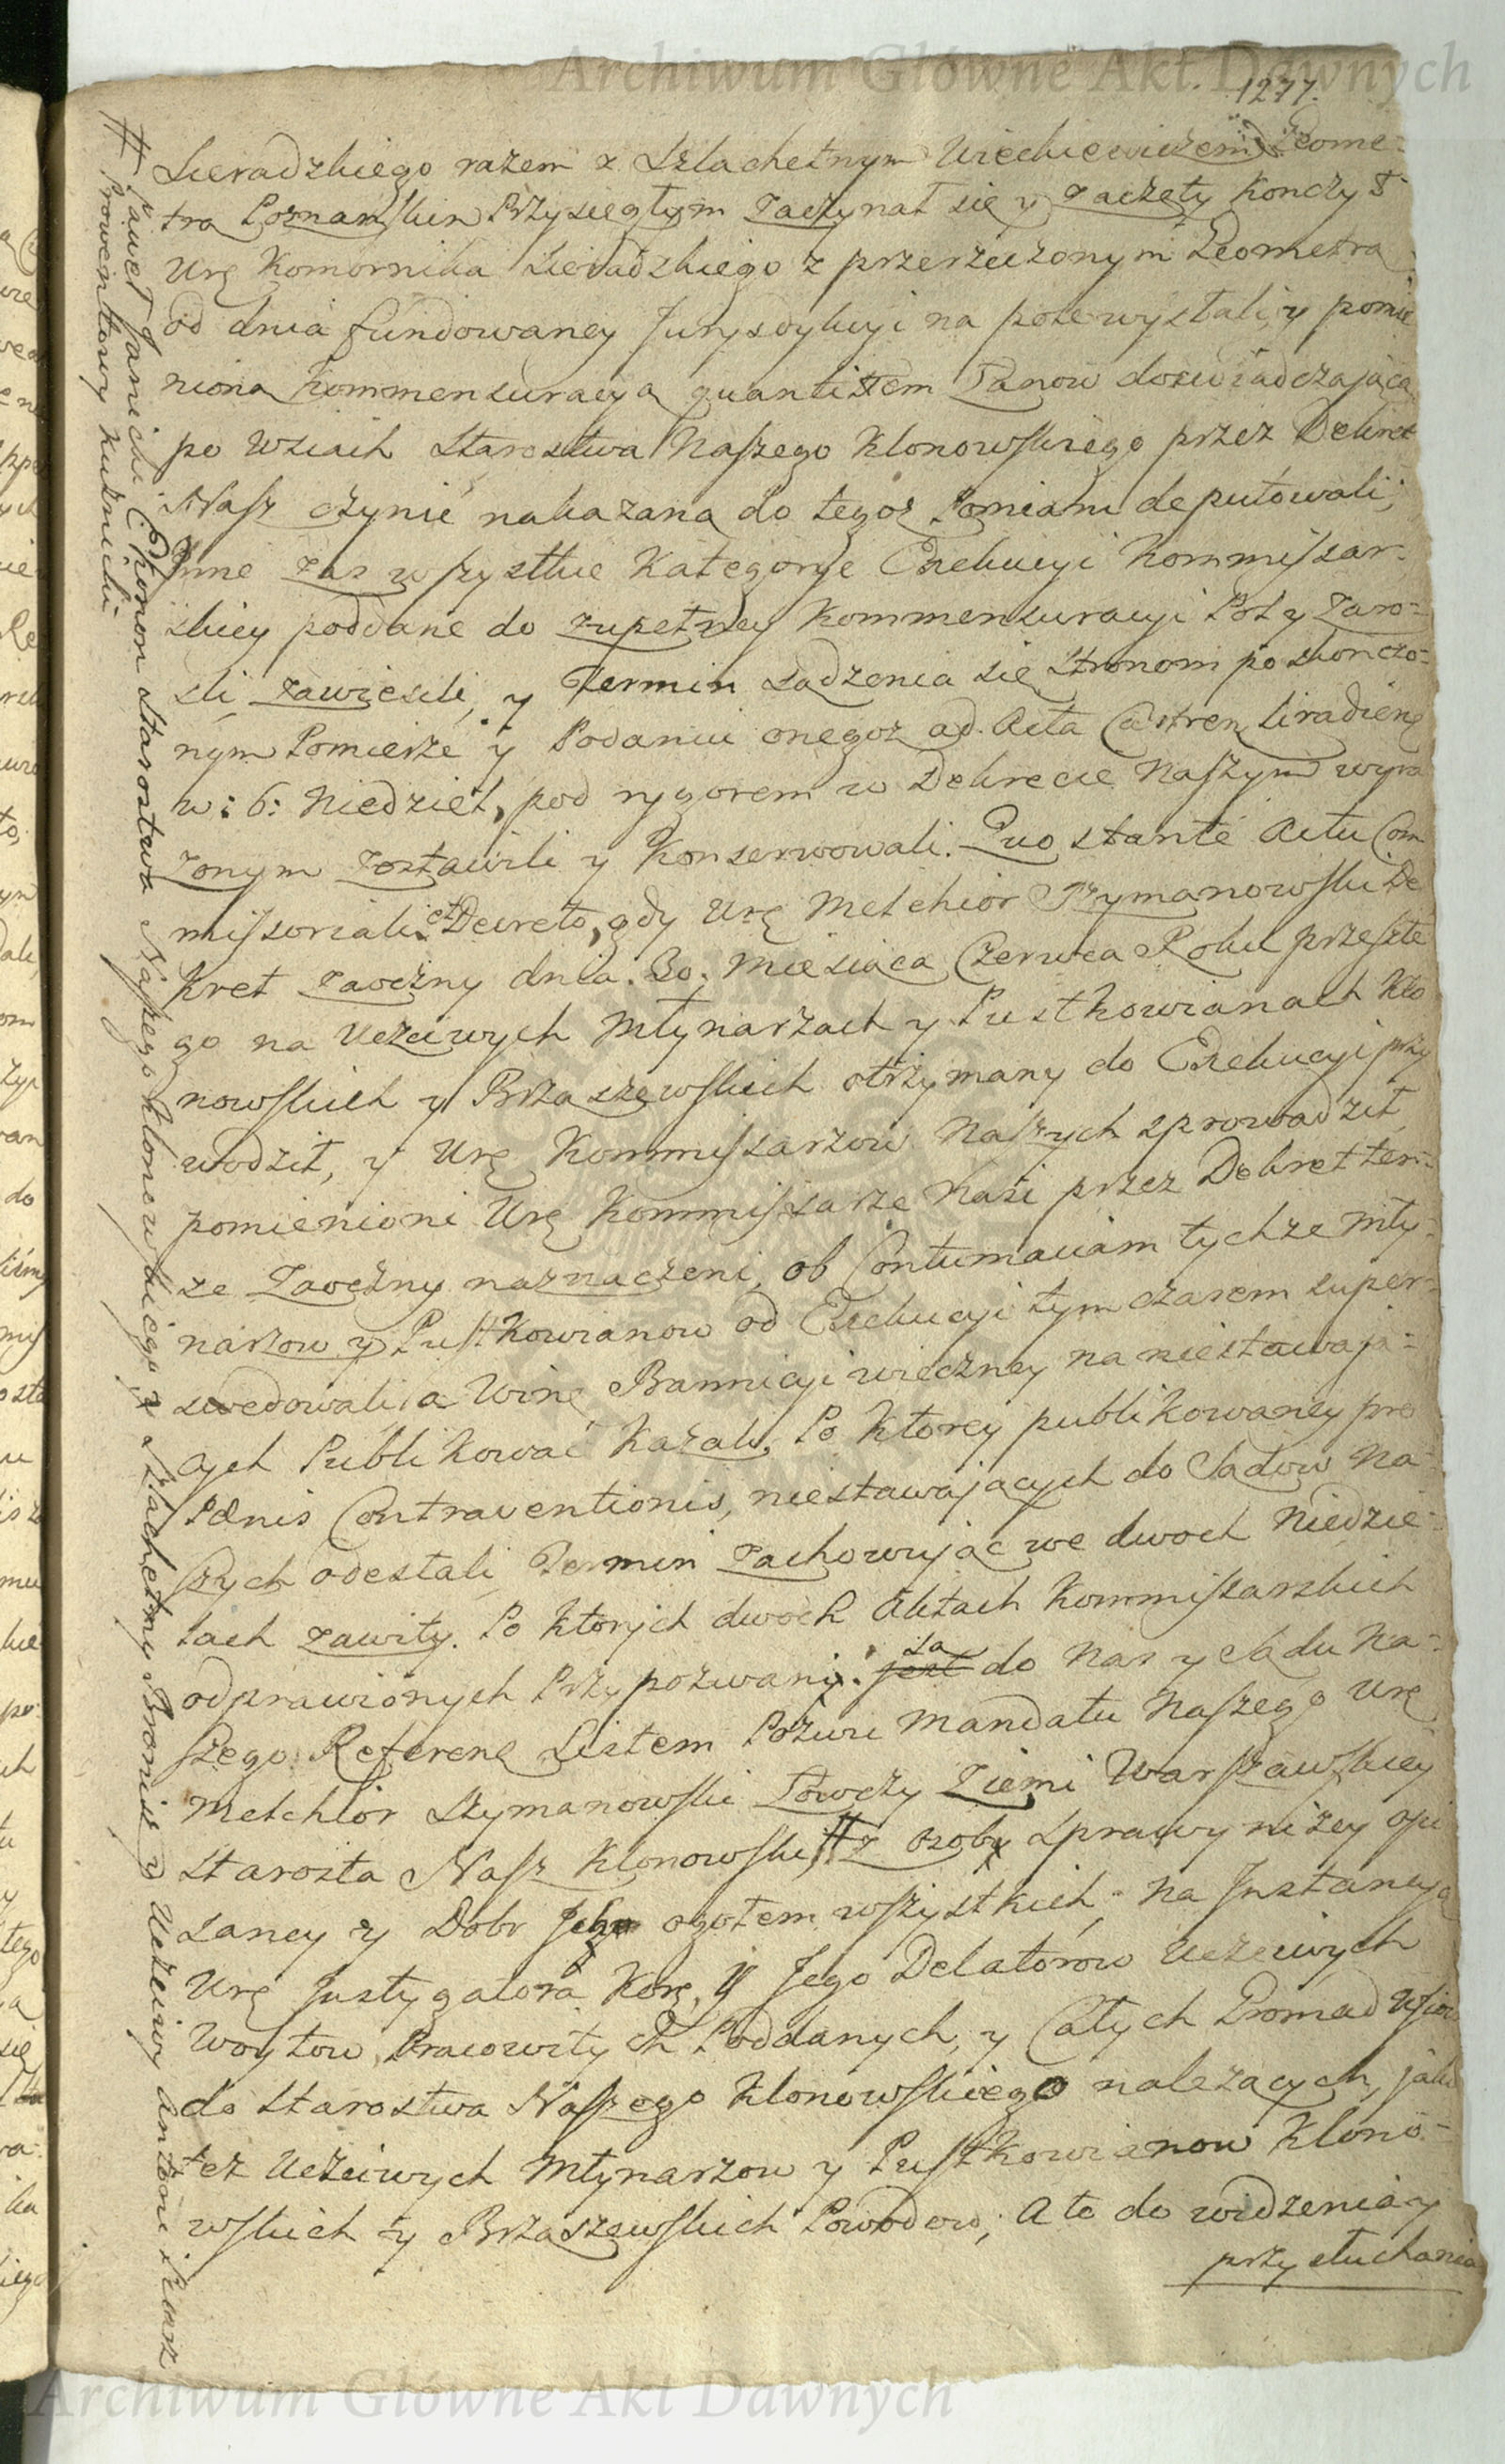 Archiwum Główne Akt Dawnych
1277.
Sieradzkiego razem z Szlachetnym Wiechiewiczem Geome-
trą Poznanskim Przysięgłym zaczynał się y zaczęty konczył
Urę Komornika Sieradzkiego z przerzeczonym Geometrą
od dnia fundowaney Jurysdykcyi na pole wysłali, y pomie
niona kommensuracya quantitatem Łanow doswiadczaiącą
po Wsiach Starostwa Naszego Klonowskiego przez Dekret
Nasz czynić nakazaną do tegoż Pomiaru deputowali;
Inne zas wszystkie Kategorye Exekucyi Kommissar-
skiey poddane do zupełney Kommensuracyi Pol y Zaro-
sli zawiesili, y Termin sądzenia się Stronom po skonczo-
nym Pomierze y Podaniu onegoż ad Acta Castren Siradien
w: 6: Niedziel, pod rygorem w Dekrecie Naszym wyra
zonym zostawili y Konserwowali. Quo stante Actu Com
missoriali et Decreto, gdy Urę Melchior Szymanowski De
kret zaoczny dnia. 30. Miesiąca Czerwca Roku przeszłe
go na Uczciwych Młynarzach y Pustkowianach Klo
nowskich y Brzaszewskich otrzymany do Exekucyi przy
wodził, y Urę Kommissarzow Naszych sprowadził,
pomienioni Urę Kommissarze Nasi przez Dekret ten-
ze Zaoczny naznaczeni, ob Contumaciam tychze Mły-
narzow y Pustkowianow od Exekucyi tym czasem super-
sedowali, a Winę Bannicyi wieczney na niestawają-
cych Publikować kazali, Po ktorey publikowaney pro
Pœnis Contraventionis, niestawających do Sądow Na-
szych odesłali, Termin zachowując we dwoch Niedzie-
lach zawity. Po ktorych dwoch Aktach Kommissarskich
odprawionych Przypozwani jest są do Nas y Sądu Na-
szego Referen Listem Pozwu Mandatu Naszego Urę
Melchior Szymanowski Łowczy Ziemi Warszawskiey
Starosta Nasz Klonowski, # z osoby sprawy niżey opi
saney y Dobr Jego ogołem wszystkich, na Instancyą
Urę Instygatora Korę, y Jego Delatorow Uczciwych
Woytow, Pracowitych Poddanych, y Całych Gromad Wsiow
do Starostwa Naszego Klonowskiego należących, jako
też Uczciwych Młynarzow y Pustkowianow Klono-
wskich y Brzaszewskich Powodow; A to do widzenia y
przysłuchania
# Paweł Janicki Ekonom Starostwa Naszego Klonowskiego, y Szlachetny Bronisz y Uczciwy Antoni Pisarz
Prowentowy Kuźnicki
Archiwum Główne Akt Dawnych